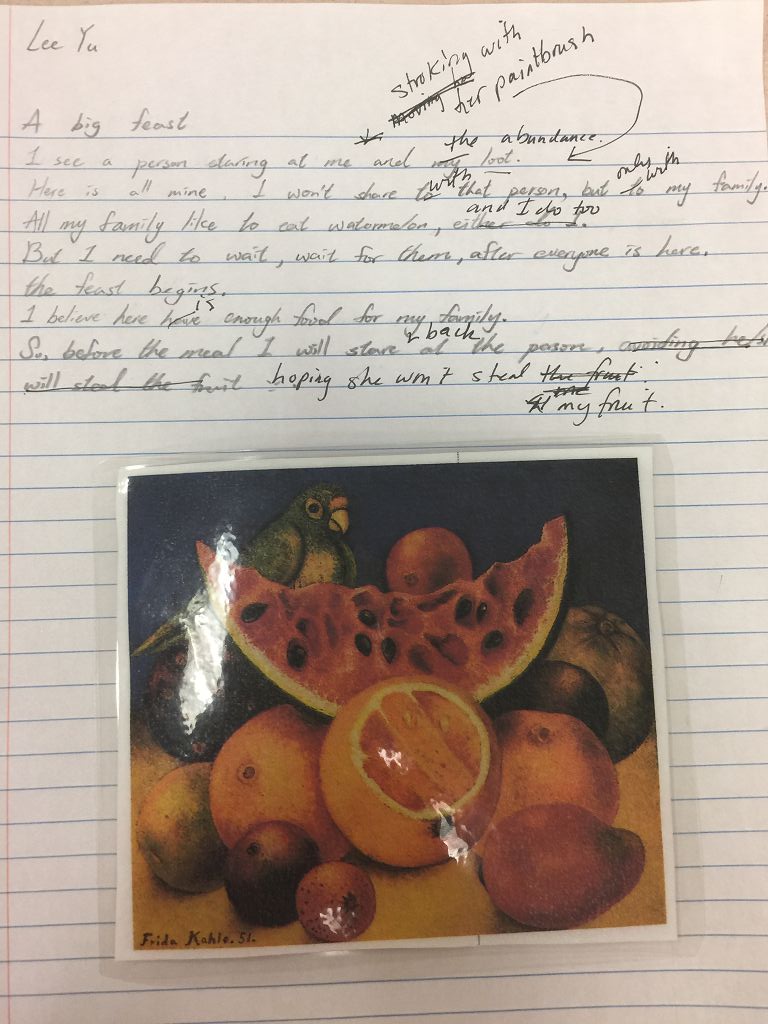 Lee Yu
stroking with
moving her
her paintbrush
A big feast
the abundance.
I see a person staring at me and my loot.
with only with
Here is all mine. I won't share to that person, but to my family.
and I do too
All my family like to eat watermelon, either do I.
But I need to wait, wait for them, after everyone is here,
the feast begins.
is
I believe here have enough food for my family.
back
So, before the meal I will stare at the person, avoiding
will steal the fruit hoping she won't steal the fruit.
my fruit.
Frida Kahlo. 51.